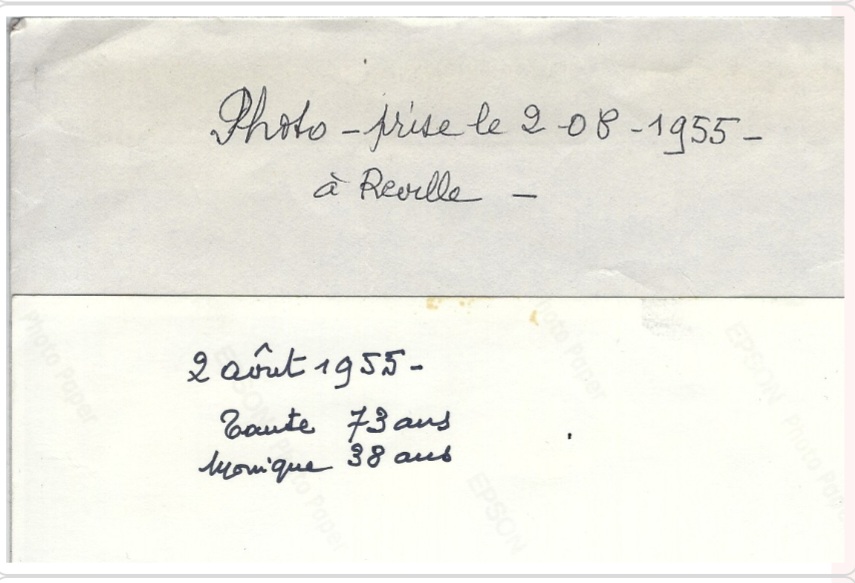 Photo - prise le 2-08-1955-
à Reville -
2 août 1955-
Tante 73 ans
Monique 38 ans
Photo Paper
EPSON
Photo Paper
EPSON
Photo Paper
EPSON
Photo Paper